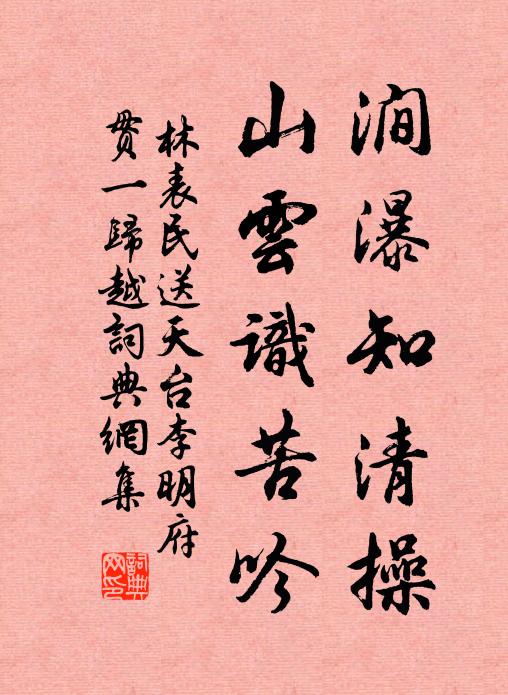 澗瀑知清操
山雲識苦吟
林表民送天台李明府
貫一歸越詞典網集
詞典網印